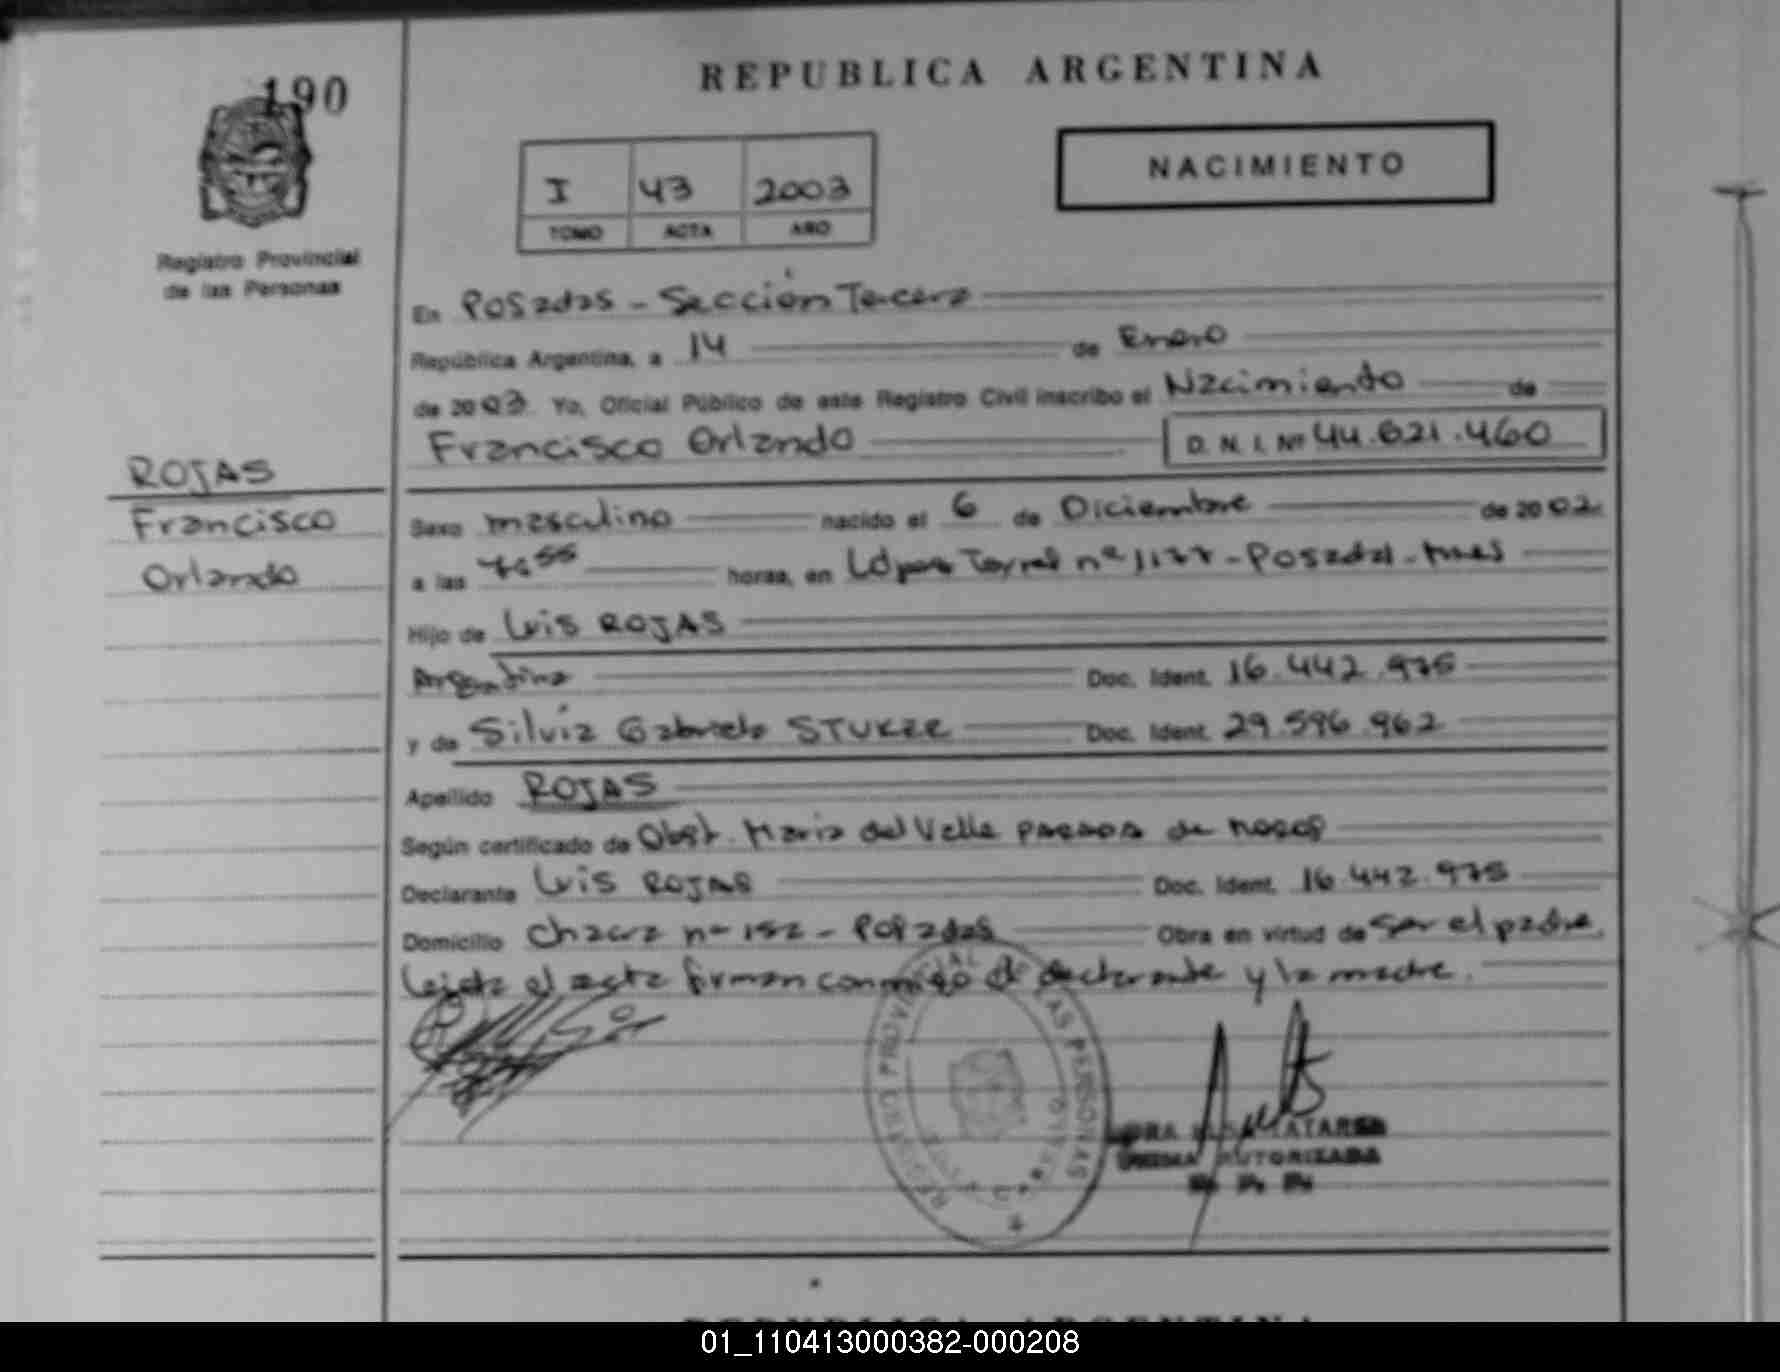 190
Registro Provincial
de las Personas
REPUBLICA ARGENTINA
NACIMIENTO
I 43 2003
TOMO ACTA AÑO
En Posadas - Sección Tercera
República Argentina, a 14 de Enero
de 2003. Yo, Oficial Público de este Registro Civil inscribo el Nacimiento de
Francisco Orlando D. N. I. Nº 44.621.460
ROJAS
Francisco
Orlando
Sexo masculino nacido el 6 de Diciembre de 2002
a las horas, en López Torres nº 1177 - Posadas - Mnes
Hijo de Luis ROJAS
Argentina Doc. Ident. 16.442.975
y de Silvia Gabriela Doc. Ident. 29.596.962
Apellido ROJAS
Según certificado de Obst. Maria del Valle de
Declarante Luis ROJAS Doc. Ident. 16.442.975
Domicilio Chacra nº 152 - Posadas Obra en virtud de ser el padre.
Leída el acta firman conmigo el declarante y la madre.
REGISTRO PROVINCIAL DE LAS PERSONAS
FIRMA AUTORIZADA
R. P. P.
REPUBLICA ARGENTINA
01_110413000382-000208